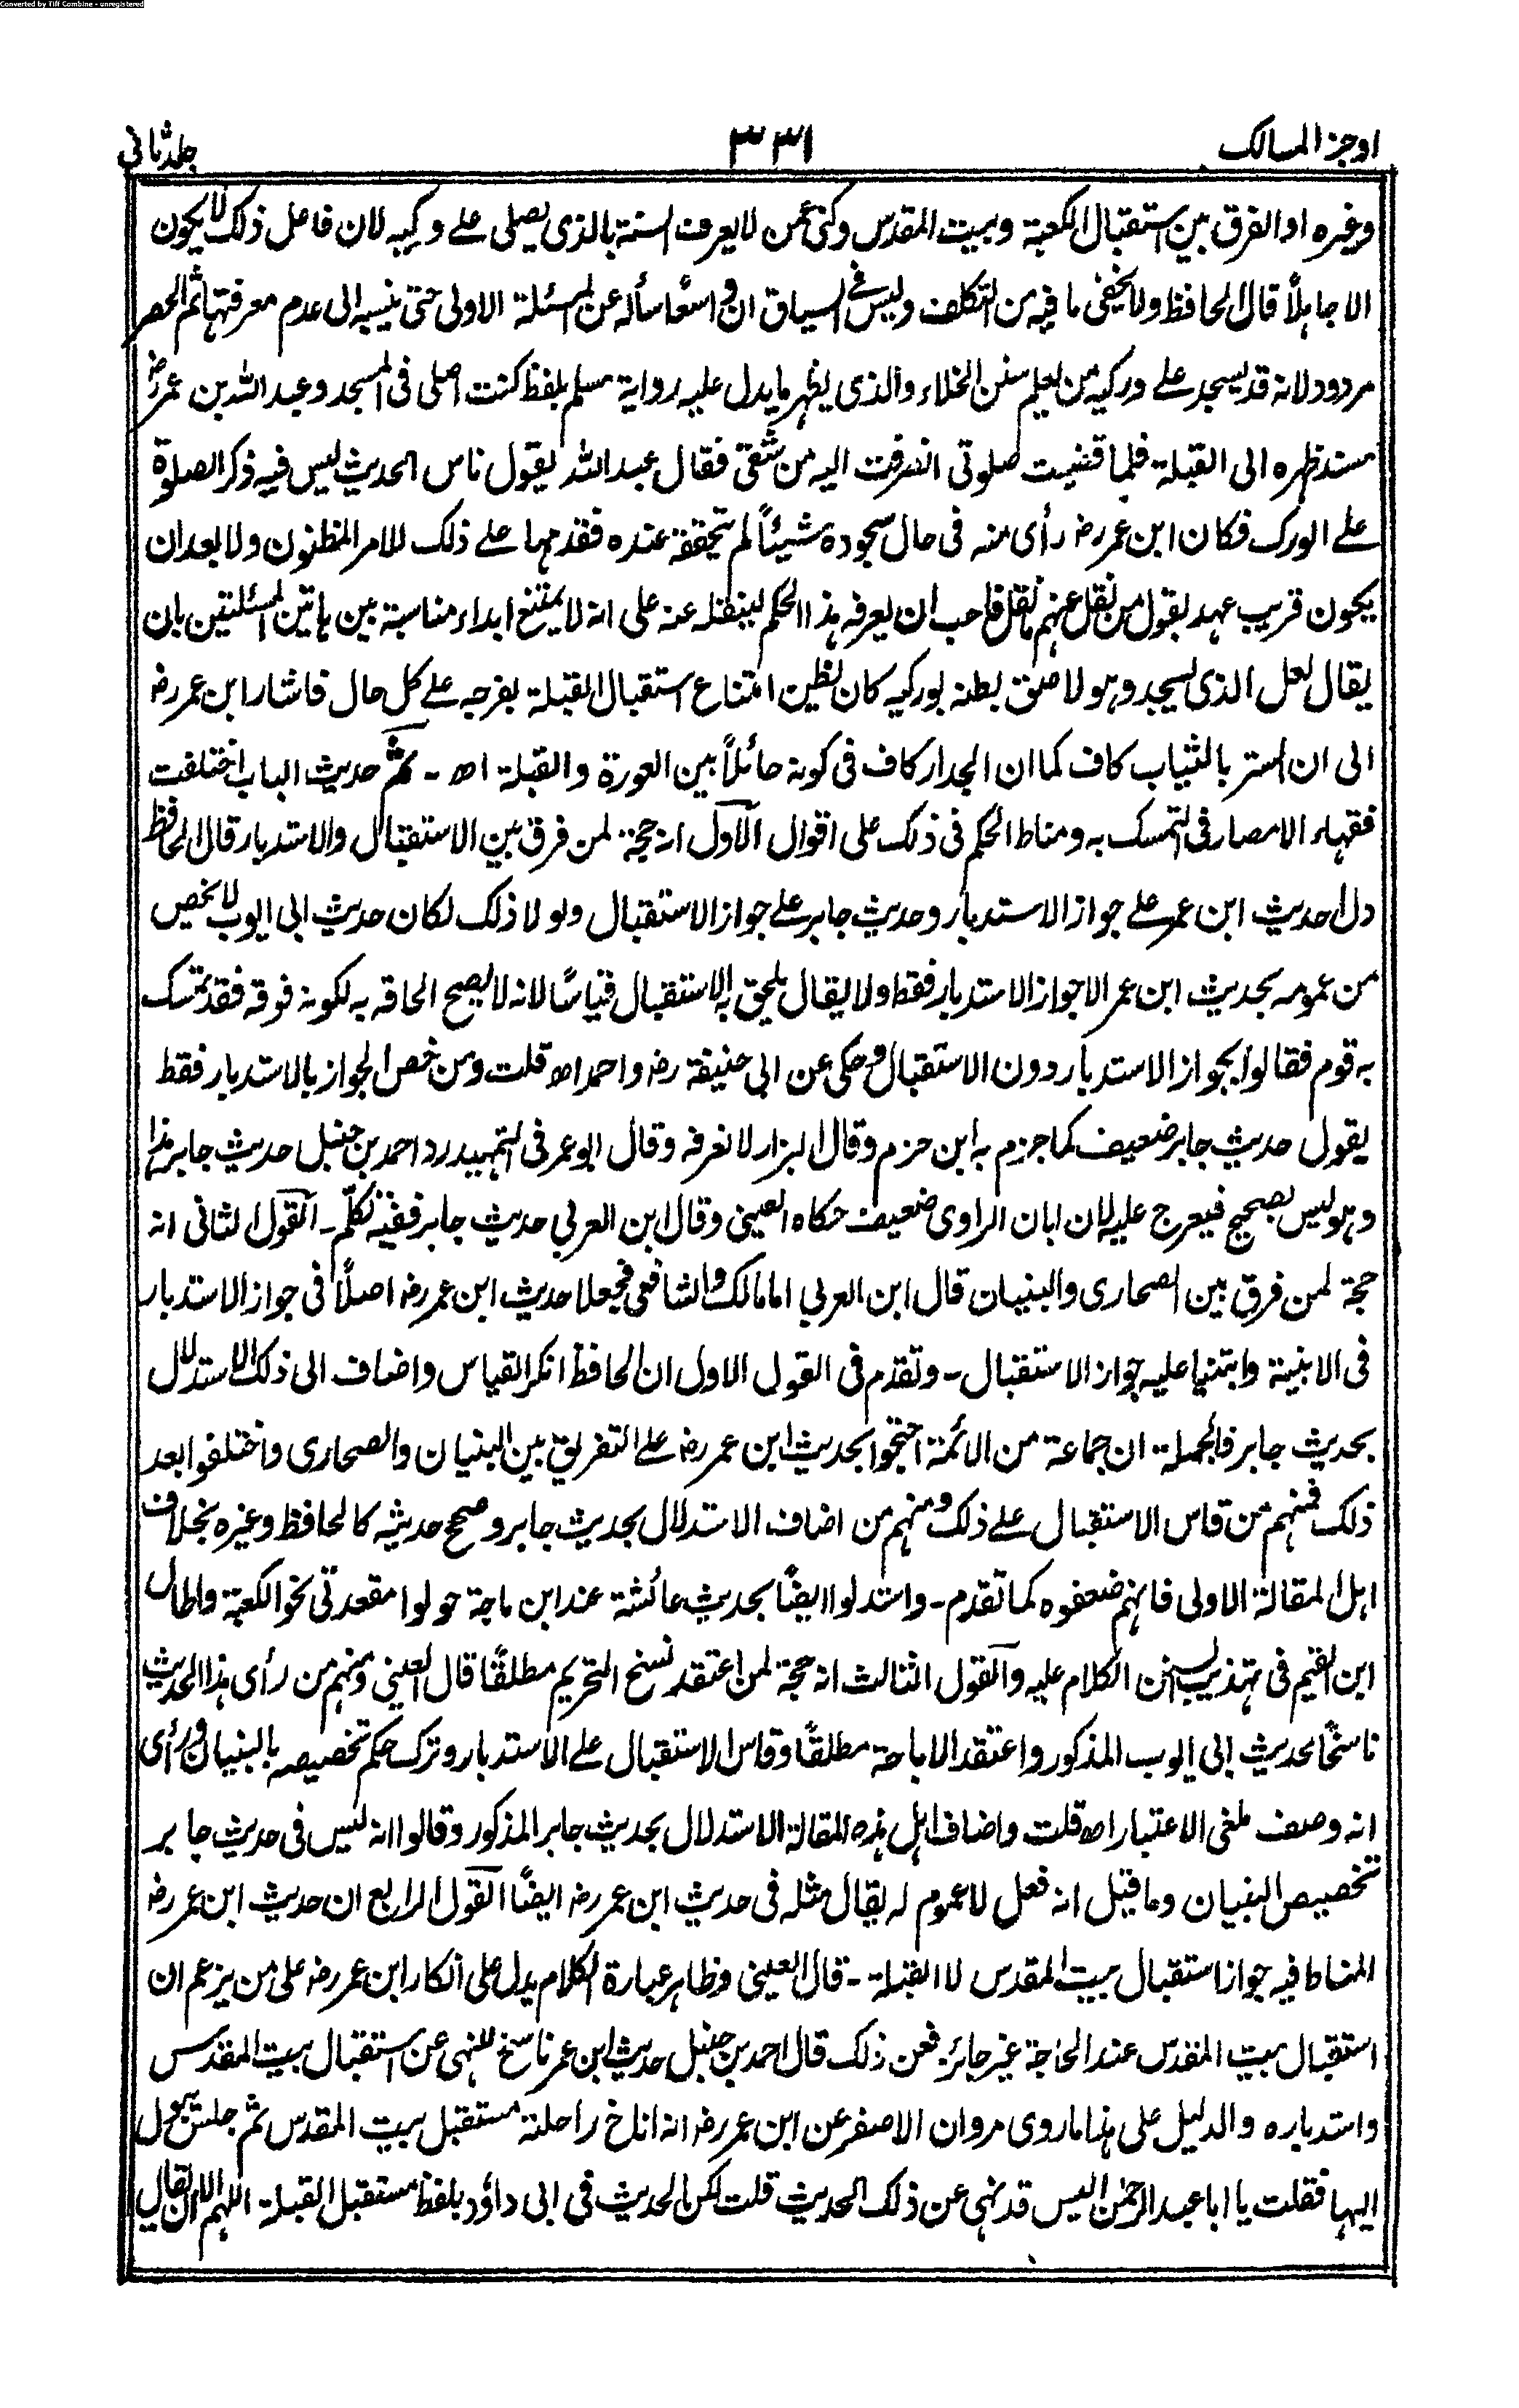 Converted by Tiff Combine - unregistered
اوجز المسالك
٣٣١
جلد ثانی
وغيره او الفرق بين استقبال الكعبة وبيت المقدس وكنى عمن لا يعرف السنة بالذى يصلى على وركيه لان فاعل ذلك لا يكون
الا جاهلاً قال الحافظ ولا يخفى ما فيه من التكلف وليس فى السياق ان واسعاً سأله عن المسئلة الاولى حتى ينسبه الى عدم معرفتها ثم الحصر
مردود لانه قد يسجد على وركيه من يعلم سنن الخلاء والذى يظهر ما يدل عليه رواية مسلم بلفظ كنت اصلى فى المسجد وعبد الله بن عمر رض
مسند ظهره الى القبلة فلما قضيت صلوتى انصرفت اليه من شقى فقال عبد الله يقول ناس الحديث ليس فيه ذكر الصلوة
على الورك فكان ابن عمر رض رأى منه فى حال سجوده شيئاً لم يتحققه عنده فقدمها على ذلك للامر المظنون ولا بعد ان
يكون قريب عهد بقول من نقل عنهم ما نقل فاحب ان يعرفه هذا الحكم لينقله عنه على انه لا يمتنع ابداء مناسبة بين هاتين المسئلتين بان
يقال لعل الذى يسجد وهو لاصق بطنه بوركيه كان يظن امتناع استقبال القبلة بفرجه على كل حال فاشار ابن عمر رض
الى ان الستر بالثياب كاف كما ان الجدار كاف فى كونه حائلاً بين العورة والقبلة اھ - ثم حديث الباب اختلفت
فقهاء الامصار فى التمسك به ومناط الحكم فى ذلك على اقوال الاول انه حجة لمن فرق بين الاستقبال والاستدبار قال الحافظ
دل حديث ابن عمر على جواز الاستدبار وحديث جابر على جواز الاستقبال ولولا ذلك لكان حديث ابى ايوب لا يخص
من عمومه بحديث ابن عمر الا جواز الاستدبار فقط ولا يقال يلحق به الاستقبال قياساً لانه لا يصح الحاقه به لكونه فوقه فقد تمسك
به قوم فقالوا بجواز الاستدبار دون الاستقبال وحكى عن ابى حنيفة رض واحمد اھ قلت ومن خص الجواز بالاستدبار فقط
يقول حديث جابر ضعيف كما جزم به ابن حزم وقال البزار لا نعرفه وقال ابو عمر فى التمهيد رد احمد بن حنبل حديث جابر هذا
وهو ليس بصحيح فيعرج عليه لان ابان الراوى ضعيف حكاه العينى وقال ابن العربى حديث جابر ففيه تكلّم - القول الثانى انه
حجة لمن فرق بين الصحارى والبنيان قال ابن العربى اما مالك والشافعى فجعلا حديث ابن عمر رض اصلاً فى جواز الاستدبار
فى الابنية وابتنيا عليه جواز الاستقبال - وتقدم فى القول الاول ان الحافظ انكر القياس واضاف الى ذلك الاستدلال
بحديث جابر فالجملة ان جماعة من الائمة احتجوا بحديث ابن عمر رض على التفريق بين البنيان والصحارى واختلفوا بعد
ذلك فمنهم من قاس الاستقبال على ذلك ومنهم من اضاف الاستدلال بحديث جابر وصحح حديثه كالحافظ وغيره بخلاف
اهل المقالة الاولى فانهم ضعفوه كما تقدم - واستدلوا ايضاً بحديث عائشة عند ابن ماجة حولوا مقعدتى نحو الكعبة واطال
ابن القيم فى تهذيب السنن الكلام عليه والقول الثالث انه حجة لمن اعتقد نسخ التحريم مطلقاً قال العينى ومنهم من رأى هذا الحديث
ناسخاً لحديث ابى ايوب المذكور واعتقد الاباحة مطلقاً وقاس الاستقبال على الاستدبار وترك حكم تخصيصه بالبنيان ورأى
انه وصف ملغى الاعتبار اھ قلت واضاف اهل هذه المقالة الاستدلال بحديث جابر المذكور وقالوا انه ليس فى حديث جابر
تخصيص البنيان وما قيل انه فعل لا عموم له يقال مثله فى حديث ابن عمر رض ايضاً القول الرابع ان حديث ابن عمر رض
المناط فيه جواز استقبال بيت المقدس لا القبلة - قال العينى وظاهر عبارة الكلام يدل على انكار ابن عمر رض على من يزعم ان
استقبال بيت المقدس عند الحاجة غير جائز فعن ذلك قال احمد بن حنبل حديث ابن عمر ناسخ للنهى عن استقبال بيت المقدس
واستدباره والدليل على هذا ما روى مروان الاصفر عن ابن عمر رض انه اناخ راحلته مستقبل بيت المقدس ثم جلس يبول
اليها فقلت يا ابا عبد الرحمٰن اليس قد نهى عن ذلك الحديث قلت لكن الحديث فى ابى داؤد بلفظ مستقبل القبلة اللهم الا ان يقال